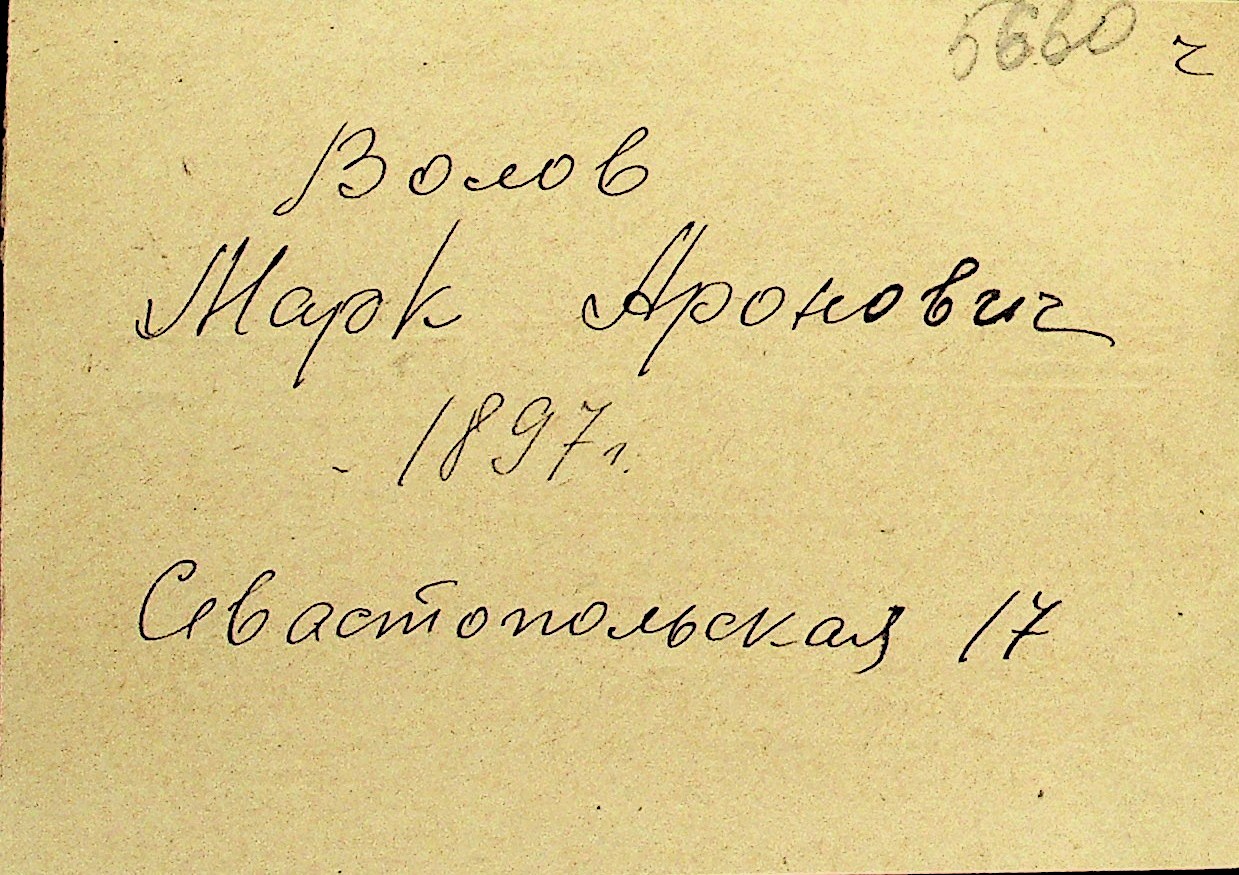 5660 ч
Волов
Марк Аронович
1897г.
Севастопольская 17